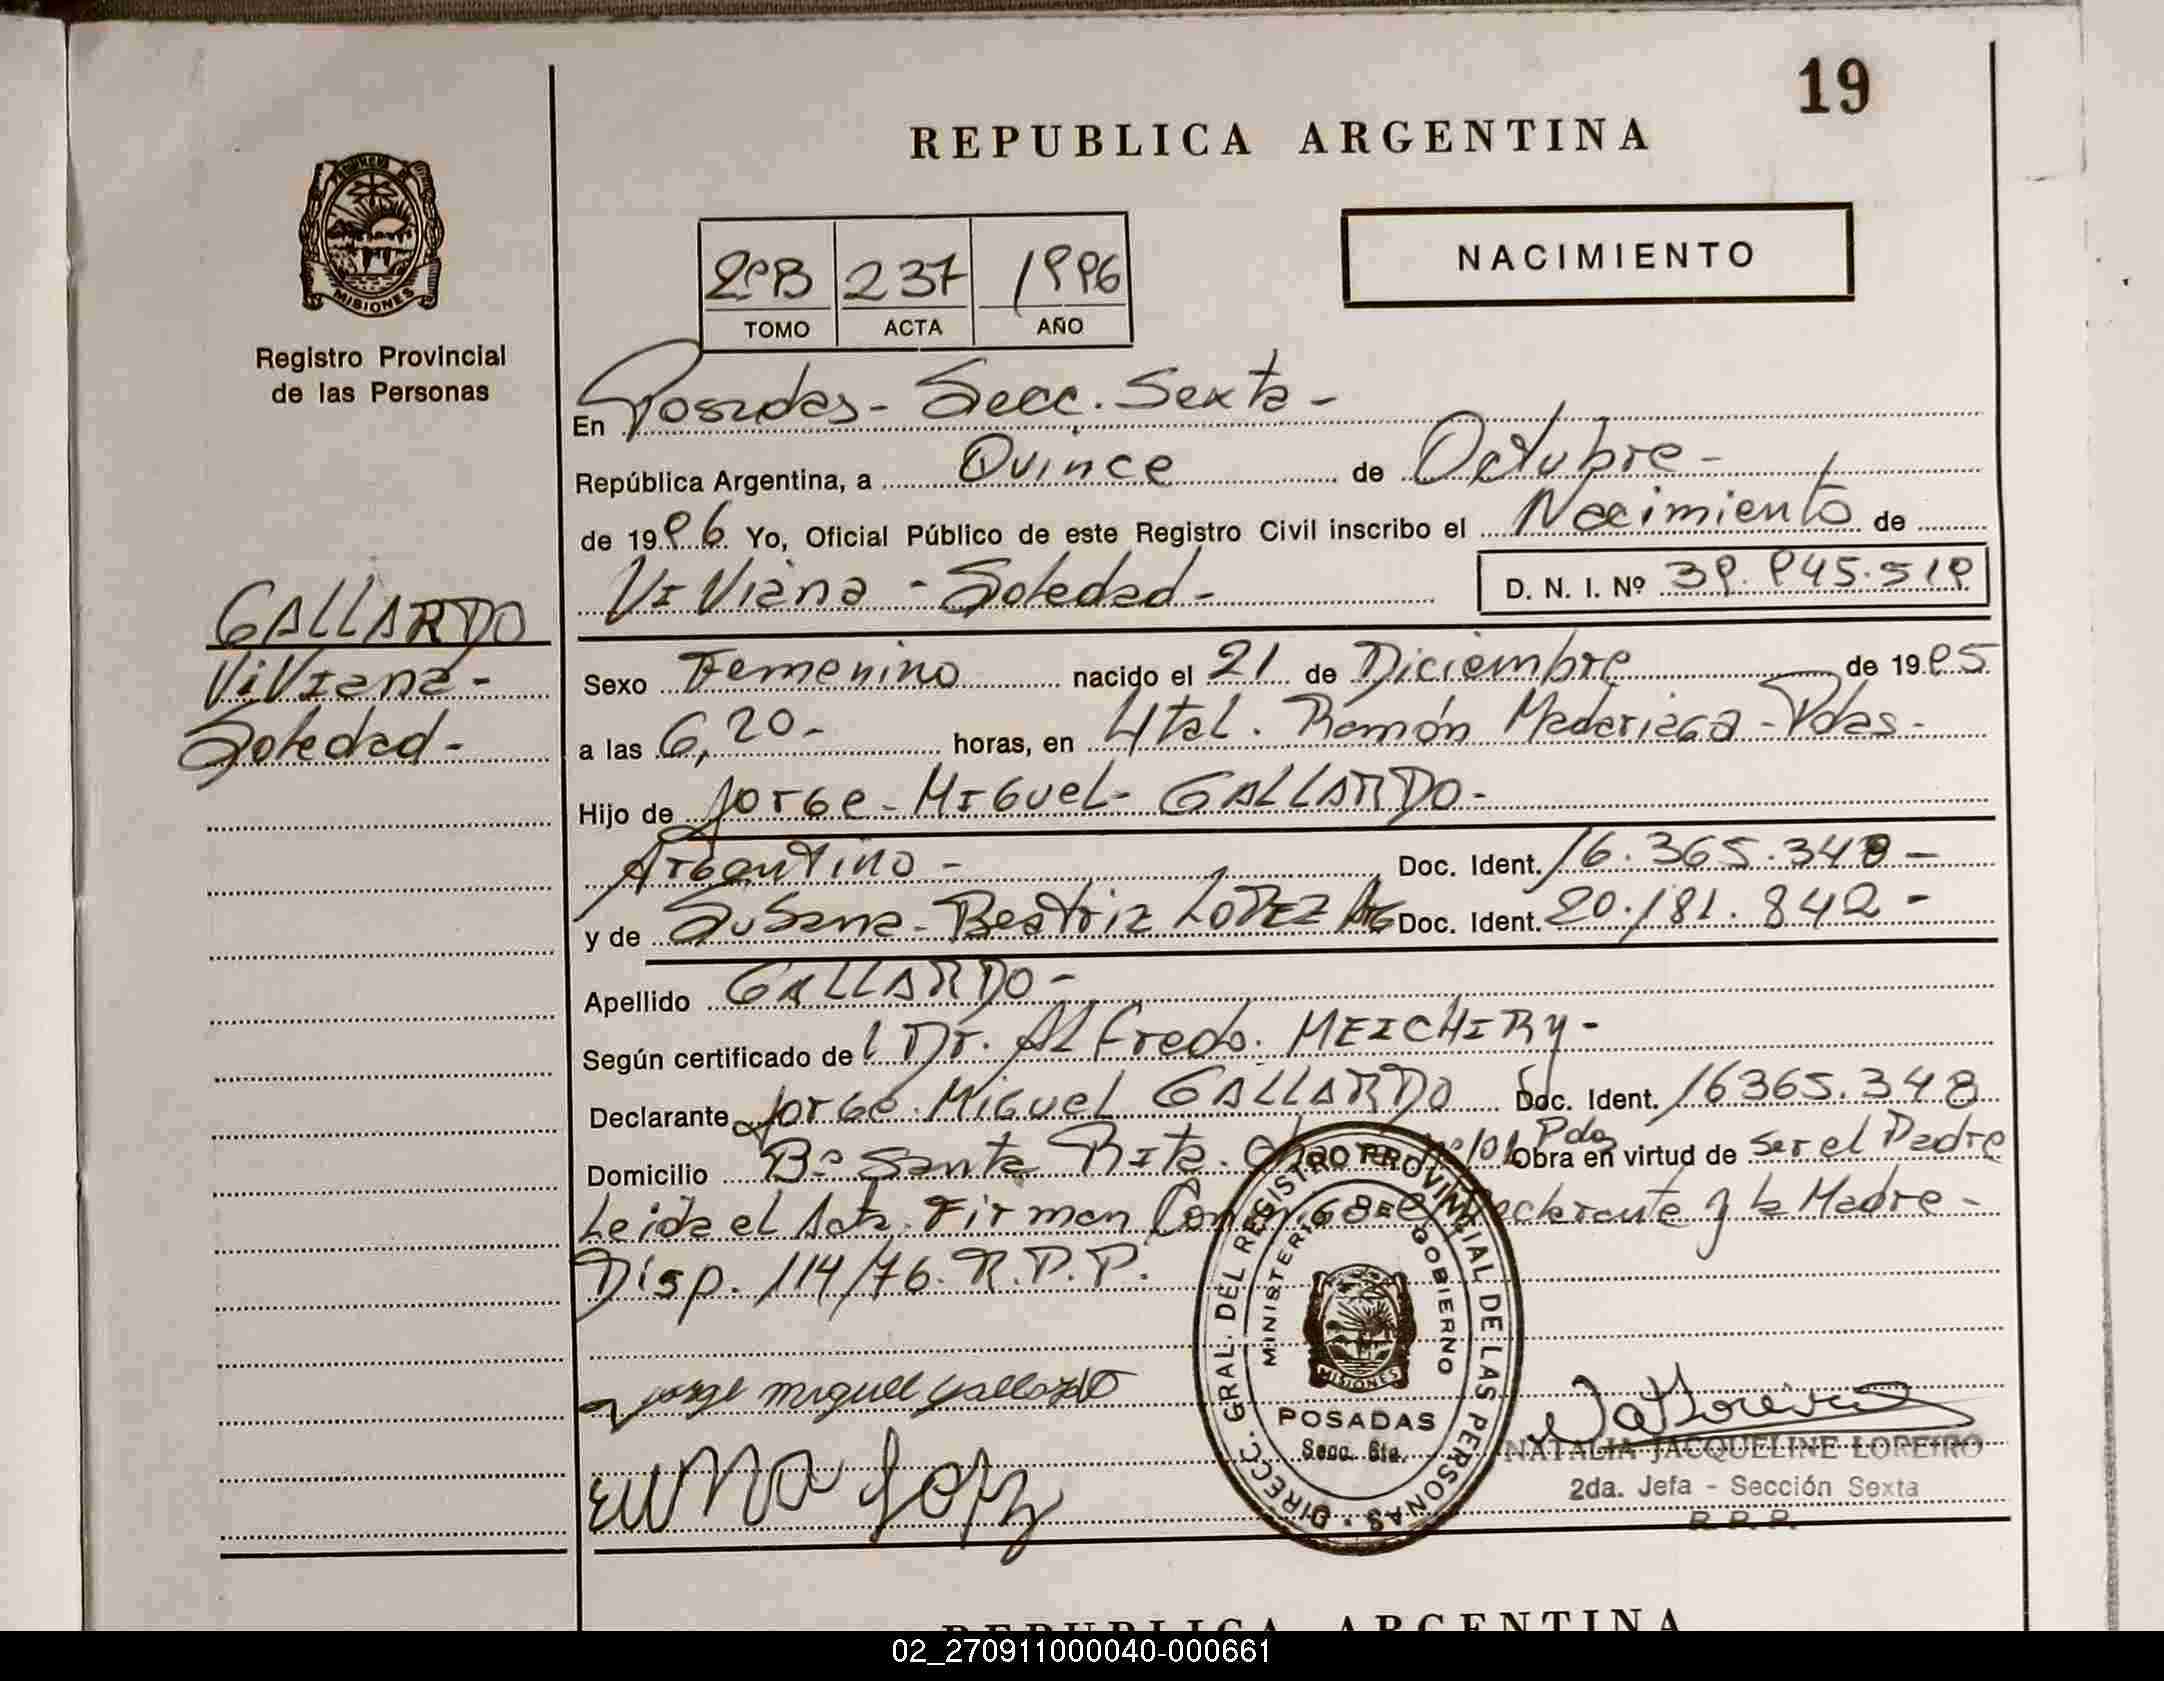 19
REPUBLICA ARGENTINA
NACIMIENTO
2ºB 237 1996
TOMO ACTA AÑO
MISIONES
Registro Provincial
de las Personas
En Posadas - Secc. Sexta -
República Argentina, a Quince de Octubre -
de 1996 Yo, Oficial Público de este Registro Civil inscribo el Nacimiento de
ViViana - Soledad - D. N. I. Nº 39.945.519
GALLARDO
ViViana -
Soledad -
Sexo Femenino nacido el 21 de Diciembre de 1995
a las 6,20 - horas, en Htal. Ramón Madariaga - Pdas -
Hijo de Jorge - Miguel - GALLARDO -
Argentino - Doc. Ident. 16.365.348 -
y de Susana - Beatriz LOPEZ Arg Doc. Ident. 20.181.842 -
Apellido GALLARDO -
Según certificado de l Dr. Alfredo. MEICHIRY -
Declarante Jorge Miguel GALLARDO Doc. Ident. 16365.348
Domicilio Bº Santa Rita. Pdas Obra en virtud de ser el Padre
Leida el Acta Firman Conmigo el Declarante y la Madre -
Disp. 114/76. R.P.P.
Jorge Miguel Gallardo
DIRECC. GRAL. DEL REGISTRO PROVINCIAL DE LAS PERSONAS
MINISTERIO DE GOBIERNO
MISIONES
POSADAS
Secc. 6ta.
NATALIA JACQUELINE LOREIRO
2da. Jefa - Sección Sexta
R.P.P.
REPUBLICA ARGENTINA
02_270911000040-000661